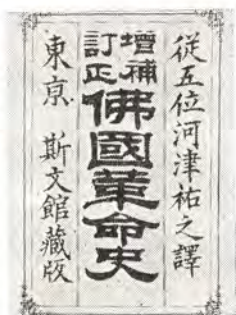 從五位河津祐之譯
增補
訂正
佛國革命史
東京 斯文館藏版